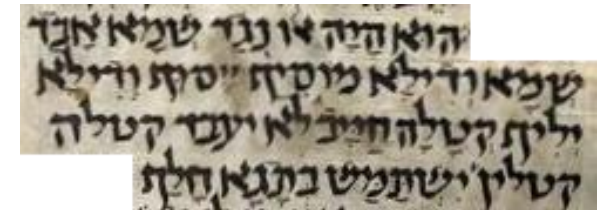 הוא היה או נגד שמא אבד
שמא ודילא מוסיף ייסיף ודילא
יליף קטלה חייב לא יעבד קטלה
קטלין ישתמש בתגא חלף